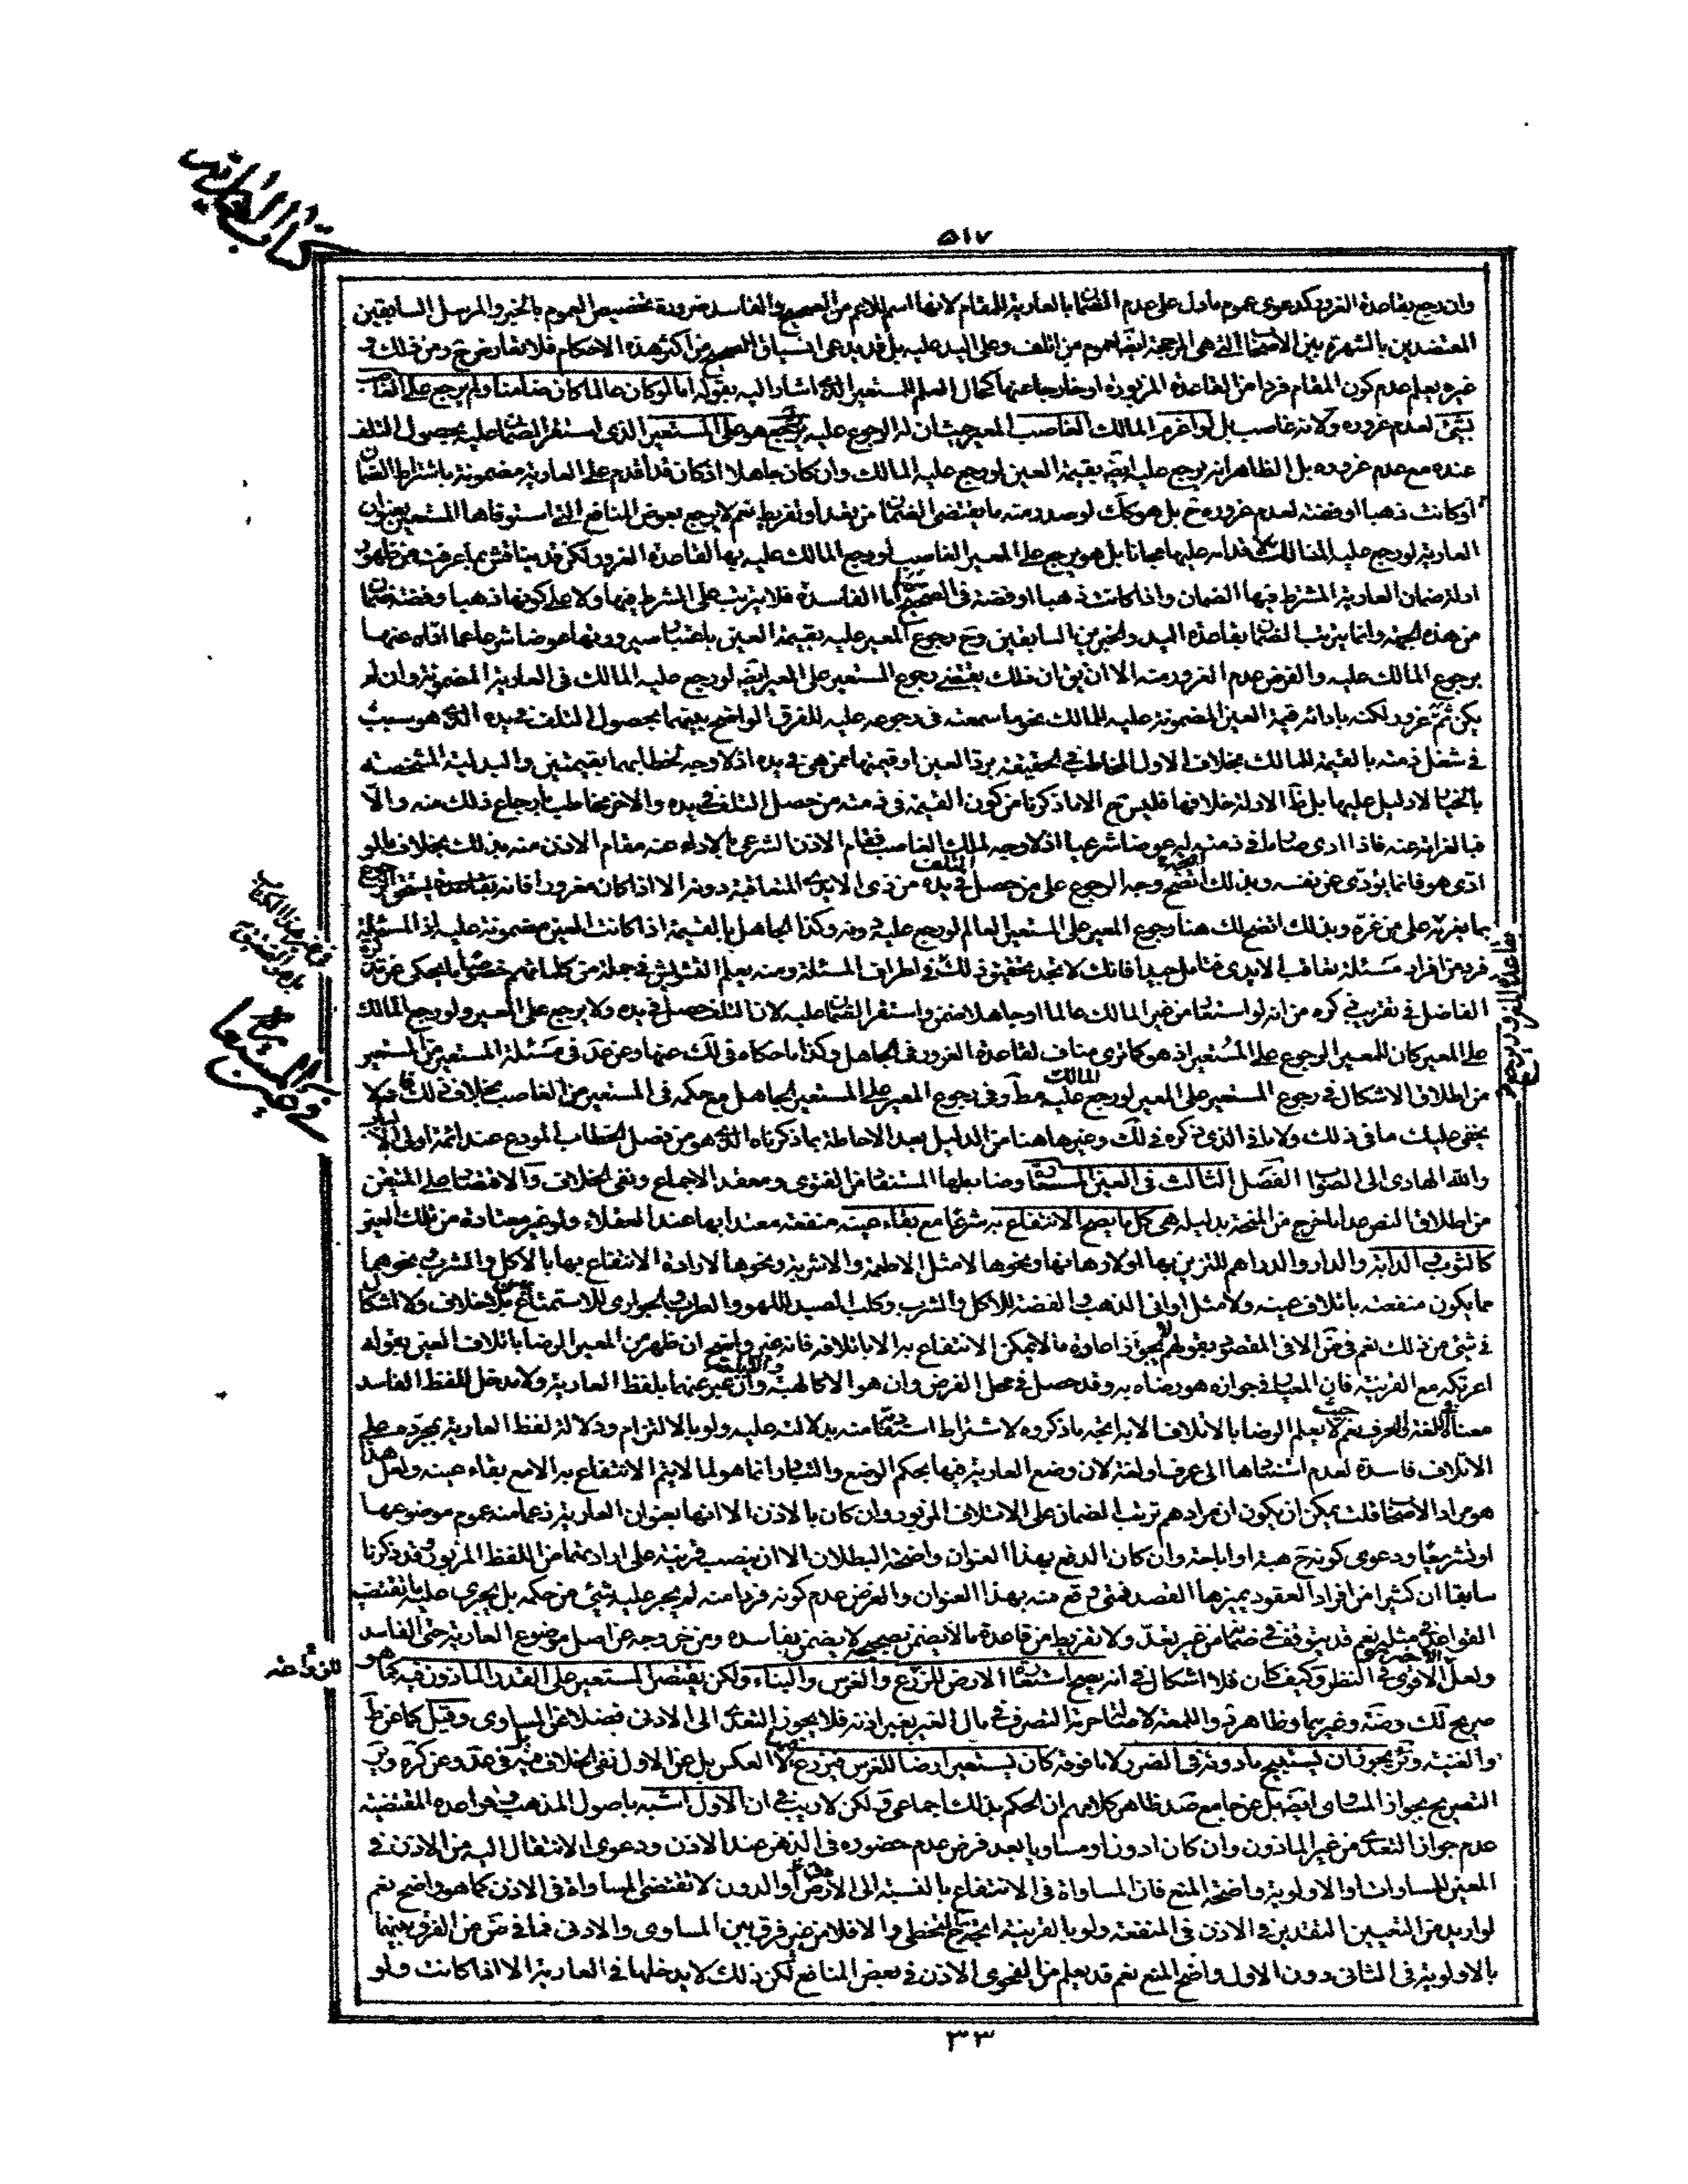 كتاب العارية
٥١٧
وان رجع بقاعدة الغرور كدعوى عموم ما دل على عدم الضمان بالعارية للمقام لانها اسم للاعم من الصحيح والفاسد ضرورة تخصيص العموم بالخبر والمرسل السابقين
المعتضدين بالشهرة بين الاصحاب التي هي المرجحة ايضا لعموم من اتلف وعلى اليد عليه بل قد يدعى انسياق الصحيح من اكثر هذه الاحكام فلا تعارض ح ومن ذلك و
غيره يعلم عدم كون المقام فردا من القاعدة المزبورة او خارجا عنها كحال العلم للمستعير الذي اشار اليه بقوله اما لو كان عالما كان ضامنا ولم يرجع على الغاصب
بشئ لعدم غروره ولانه غاصب بل لو اغرم المالك الغاصب المعير حيث ان له الرجوع عليه يرجع هو على المستعير الذي استقر الضمان عليه بحصول التلف
عنده مع عدم غروره بل الظاهر انه يرجع عليه ايضا بقيمة العين لو رجع عليه المالك وان كان جاهلا اذ كان قد اقدم على العارية مضمونة باشتراط الضمان
او كانت ذهبا او فضة لعدم غروره ح بل هو كك لو صدر منه ما يقتضى الضمان من تعد او تفريط نعم لا يرجع بعوض المنافع التي استوفاها المستعير بعنوان
العارية لو رجع عليه المالك قدامه عليها مجانا بل هو يرجع على المعير الغاصب لو رجع المالك عليه بها لقاعدة الغرور لكن قد يناقش بما عرفت من ظهور
ادلة ضمان العارية المشترط فيها الضمان واذا كانت ذهبا او فضة في الصحيح اما الفاسدة فلا يترتب على الشرط فيها ولا على كونها ذهبا وفضة ضمان
من هذه الجهة وانما يترتب الضمان بقاعدة اليد والخبرين السابقين وح رجوع المعير عليه بقيمة العين باعتبار صيرورتها عوضا شرعا عما اداه عنها
برجوع المالك عليه والفرض عدم الغرور منه الا ان يق ان ذلك يقتضى رجوع المستعير على المعير ايضا لو رجع عليه المالك في العارية المضمونة وان لم
يكن ثم غرور لكنه بادائه قيمة العين المضمونة عليه للمالك نحو ما سمعته في رجوعه عليه للفرق الواضح بينهما بحصول التلف في يده الذي هو سبب
في شغل ذمته بالقيمة للمالك بخلاف الاول المخاطب في الحقيقة برد العين او قيمتها ممن هي في يده اذ لا وجه لخطابهما بقيمتين والبدلية الشخصية
بالخيار لا دليل عليها بل ظ الادلة خلافها فليس ح الا ما ذكرنا من كون القيمة في ذمته من حصل التلف في يده والاخر مخاطب بارجاع ذلك منه والا
فبالغرامة عنه فاذا ادى ملك ما في ذمته له عوضا شرعيا اذ لا وجه لملك الغاصب فقام الاذن الشرعي بالاداء عنه مقام الاذن منه بذلك بخلاف ما لو
ادى هو فانما يؤدى عن نفسه وبذلك اتضح وجه الرجوع على من حصل التلف في يده من ذي الايدي المتعاقبة دونه الا اذا كان مغرورا فانه بقاعدة يستحق الرجوع
بما يغرمه على من غره وبذلك اتضح لك هنا رجوع المعير على المستعير العالم لو رجع عليه دونه وكذا الجاهل بالقيمة اذا كانت العين مضمونة عليه اذ المسئلة
فرد من افراد مسئلة تعاقب الايدى فتامل جيدا فانك لا تجد تحقيق ذلك في اطراف المسئلة ومنه يعلم التشويش في جملة من كلماتهم خصوصا ما يحكى عن كره
الفاضل في تقريب كره من انه لو استعار من غير المالك عالما او جاهلا ضمن واستقر الضمان عليه لان التلف حصل في يده ولا يرجع على المعير ولو رجع المالك
على المعير كان للمعير الرجوع على المستعير اذ هو كما ترى مناف لقاعدة الغرور في الجاهل وكذا ما حكاه في لك عنها وعن عد في مسئلة المستعير من المستعير
من اطلاق الاشكال في رجوع المستعير على المعير لو رجع عليه المالك مط وفي رجوع المعير على المستعير الجاهل مع حكمه في المستعير من الغاصب بخلاف ذلك فلا
يخفى عليك ما في ذلك ولا ما في الذي ذكره في لك وغيرها هنا من الدليل بعد الاحاطة بما ذكرناه الذي هو من فصل الخطاب المودع عند ائمة اولى الالباب
والله الهادى الى الصواب الفصل الثالث في العين المستعارة وضابطها المستفاد من الفتوى ومعقد الاجماع ونفي الخلاف والاقتصار على المتيقن
من اطلاق النص عدا ما خرج من المنحة بدليله هي كل ما يصح الانتفاع به شرعا مع بقاء عينه منفعة معتدا بها عند العقلاء ولو غير معتادة من تلك العين
كالثوب والدابة والدار والدراهم للتزين بها اولادها نها ونحوها لا مثل الاطعمة والاشربة ونحوها لارادة الانتفاع بها بالاكل والشرب ونحوهما
مما يكون منفعته باتلاف عينه ولا مثل اواني الذهب والفضة للاكل والشرب وكلب الصيد للهو والطرب والجوارى للاستمتاع بلا خلاف ولا اشكال
في شئ من ذلك نعم في ض الا في المقصود بقولهم لا يجوز اعارة ما لا يمكن الانتفاع به الا باتلافه فانه غير واضح ان ظهر من المعير الرضا باتلاف العين بقوله
اعرتكه مع القرينة فان المعيار في جوازه هو رضاه به وقد حصل في محل الفرض وان هو الا كالهبة وان عبر عنهما بلفظ العارية ولا مدخل للفظ الفاسد
معناه لغة والعرف نعم حيث لا يعلم الرضا بالاتلاف الا به اتجه ما ذكروه لاشتراط استفادته منه بدلالته عليه ولو بالالتزام ودلالة لفظ العارية بمجرده على
الاتلاف فاسدة لعدم استنادها الى عرف او لغة لان وضع العارية فيها بحكم الوضع والتبادر انما هو لما لا يتم الانتفاع به الا مع بقاء عينه ولعل هذا
هو مراد الاصحاب قلت يمكن ان يكون ان مرادهم ترتب الضمان على الاتلاف المزبور وان كان بالاذن الا انها بعنوان العارية زعما منه عموم موضوعها
او تشريعا ودعوى كونه ح هبة او اباحة وان كان الدفع بهذا العنوان واضحة البطلان الا ان ينصب قرينة على ارادتهما من اللفظ المزبور وقد ذكرنا
سابقا ان كثيرا من افراد العقود يميزها القصد فمتى وقع منه بهذا العنوان والفرض عدم كونه فردا منه لم يجر عليه شئ من حكمه بل يجرى عليه ما تقتضيه
القواعد في مثله نعم قد يتوقف في ضمانه من غير تعد ولا تفريط من قاعدة ما لا يضمن بصحيحه لا يضمن بفاسده ومن خروجه عن اصل موضوع العارية حتى الفاسد
ولعل الاقوى الاخير في النظر وكيف كان فلا اشكال في انه يصح استعارة الارض للزرع والغرس والبناء ولكن يقتصر المستعير على القدر الماذون فيه كما هو
صريح لك وضة وغيرهما وظاهر فع واللمعة لاصالة حرمة التصرف في مال الغير بغير اذنه فلا يجوز التعدى الى الادنى فضلا عن المساوى وقيل كما عن ط
والغنية وئر يجوز ان يستبيح ما دونه في الضرر لا ما فوقه كان يستعير ارضا للغرس فيزرع لا العكس بل عن الاول نفي الخلاف فيه بل في عد وعن كره وير
التصريح بجواز المساوى ايضا بل عن جامع صد ظاهر كلامهم ان الحكم بذلك اجماعي ولكن لا ريب في ان الاول اشبه باصول المذهب وقواعده المقتضية
عدم جواز التعدى من غير الماذون وان كان ادون او مساويا بعد فرض عدم حضوره في الذهن عند الاذن ودعوى الانتقال اليه من الاذن في
المعين للمساوات او الاولوية واضحة المنع فان المساواة في الانتفاع بالنسبة الى الارض او الدون لا تقتضى المساواة في الاذن كما هو واضح نعم
لو اريد من التعيين التقدير في الاذن في المنفعة ولو بالقرينة اتجه ح التخطى والا فلا من غير فرق بين المساوى والادنى فما في ض من الفرق بينهما
بالاولوية في الثاني دون الاول واضح المنع نعم قد يعلم من الفحوى الاذن في بعض المنافع لكن ذلك لا يدخلها في العارية الا اذا كانت ولو
٣٣